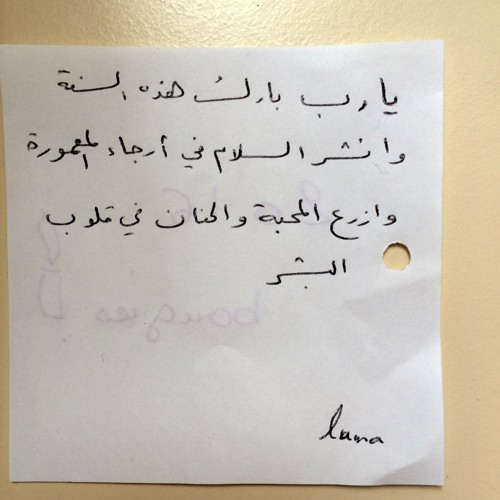 يا رب باركْ هذه السنة
وانشر السلام في أرجاء المعمورة
وازرع المحبة والحنان في قلوب
البشر
luma